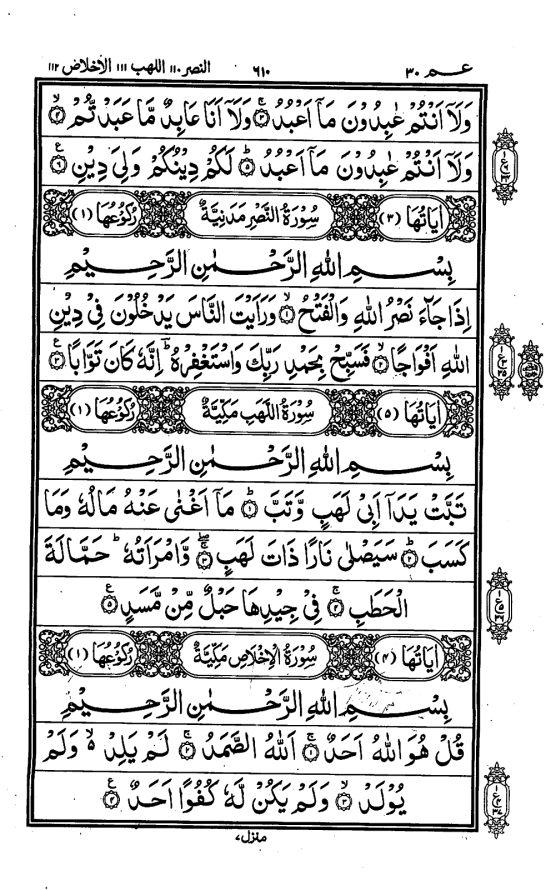 عـم ٣٠ ٦١٠ النصر ١١٠ اللهب ١١١ الاخلاص ١١٢
وَلَآ اَنْتُمْ عٰبِدُوْنَ مَآ اَعْبُدُ ۚ﴿٣﴾ وَلَآ اَنَا عَابِدٌ مَّا عَبَدْتُّمْ ۙ﴿٤﴾
وَلَآ اَنْتُمْ عٰبِدُوْنَ مَآ اَعْبُدُ ؕ﴿٥﴾ لَكُمْ دِيْنُكُمْ وَلِيَ دِيْنِ ﴿٦﴾
اٰيَاتُهَا (٣) سُوْرَةُ النَّصْرِ مَدَنِيَّةٌ رُكُوْعُهَا (١)
بِسْمِ اللهِ الرَّحْمٰنِ الرَّحِيْمِ
اِذَا جَآءَ نَصْرُ اللهِ وَالْفَتْحُ ۙ﴿١﴾ وَرَاَيْتَ النَّاسَ يَدْخُلُوْنَ فِيْ دِيْنِ
اللهِ اَفْوَاجًا ۙ﴿٢﴾ فَسَبِّحْ بِحَمْدِ رَبِّكَ وَاسْتَغْفِرْهُ ؕ اِنَّهٗ كَانَ تَوَّابًا ﴿٣﴾
اٰيَاتُهَا (٥) سُوْرَةُ اللَّهَبِ مَكِّيَّةٌ رُكُوْعُهَا (١)
بِسْمِ اللهِ الرَّحْمٰنِ الرَّحِيْمِ
تَبَّتْ يَدَآ اَبِيْ لَهَبٍ وَّتَبَّ ؕ﴿١﴾ مَآ اَغْنٰى عَنْهُ مَالُهٗ وَمَا
كَسَبَ ؕ﴿٢﴾ سَيَصْلٰى نَارًا ذَاتَ لَهَبٍ ۚ﴿٣﴾ وَّامْرَاَتُهٗ ؕ حَمَّالَةَ
الْحَطَبِ ۚ﴿٤﴾ فِيْ جِيْدِهَا حَبْلٌ مِّنْ مَّسَدٍ ﴿٥﴾
اٰيَاتُهَا (٤) سُوْرَةُ الْاِخْلَاصِ مَكِّيَّةٌ رُكُوْعُهَا (١)
بِسْمِ اللهِ الرَّحْمٰنِ الرَّحِيْمِ
قُلْ هُوَ اللهُ اَحَدٌ ۚ﴿١﴾ اَللهُ الصَّمَدُ ۚ﴿٢﴾ لَمْ يَلِدْ ۙ۬ وَلَمْ
يُوْلَدْ ۙ﴿٣﴾ وَلَمْ يَكُنْ لَّهٗ كُفُوًا اَحَدٌ ﴿٤﴾
منزل٧